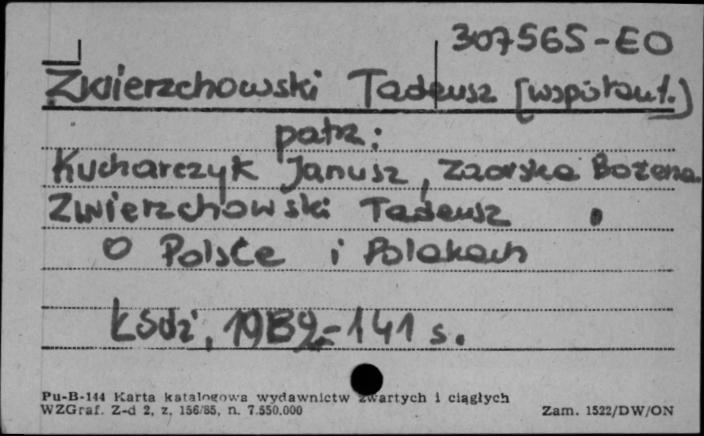 307565-EO
Zwierzchowski Tadeusz [współaut.)
patrz:
Kucharczyk Janusz, Zaorska Bożena.
Zwierzchowski Tadeusz
O Polsce i Polakach
Łódź, 1989.-141 s.
Pu-B-144 Karta katalogowa wydawnictw zwartych i ciągłych
WZGraf. Z-d 2, z, 156/85, n. 7.550.000
Zam. 1522/DW/ON